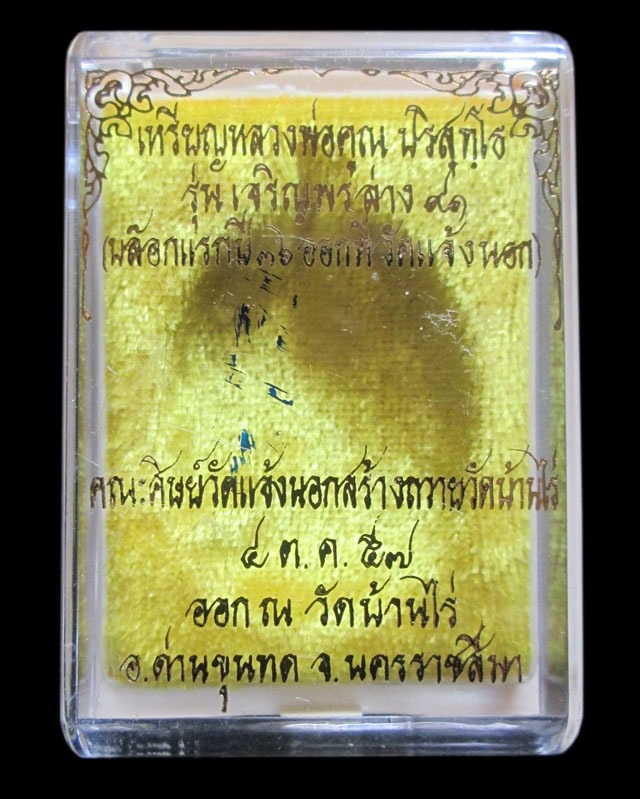 เหรียญหลวงพ่อคูณ ปริสุทฺโธ
รุ่น เจริญพรล่าง ๙๑
(บล็อกแรกปี ๓๖ ออกที่วัดแจ้งนอก)
คณะศิษย์วัดแจ้งนอกสร้างถวายวัดบ้านไร่
๔ ต.ค. ๕๗
ออก ณ วัดบ้านไร่
อ.ด่านขุนทด จ.นครราชสีมา